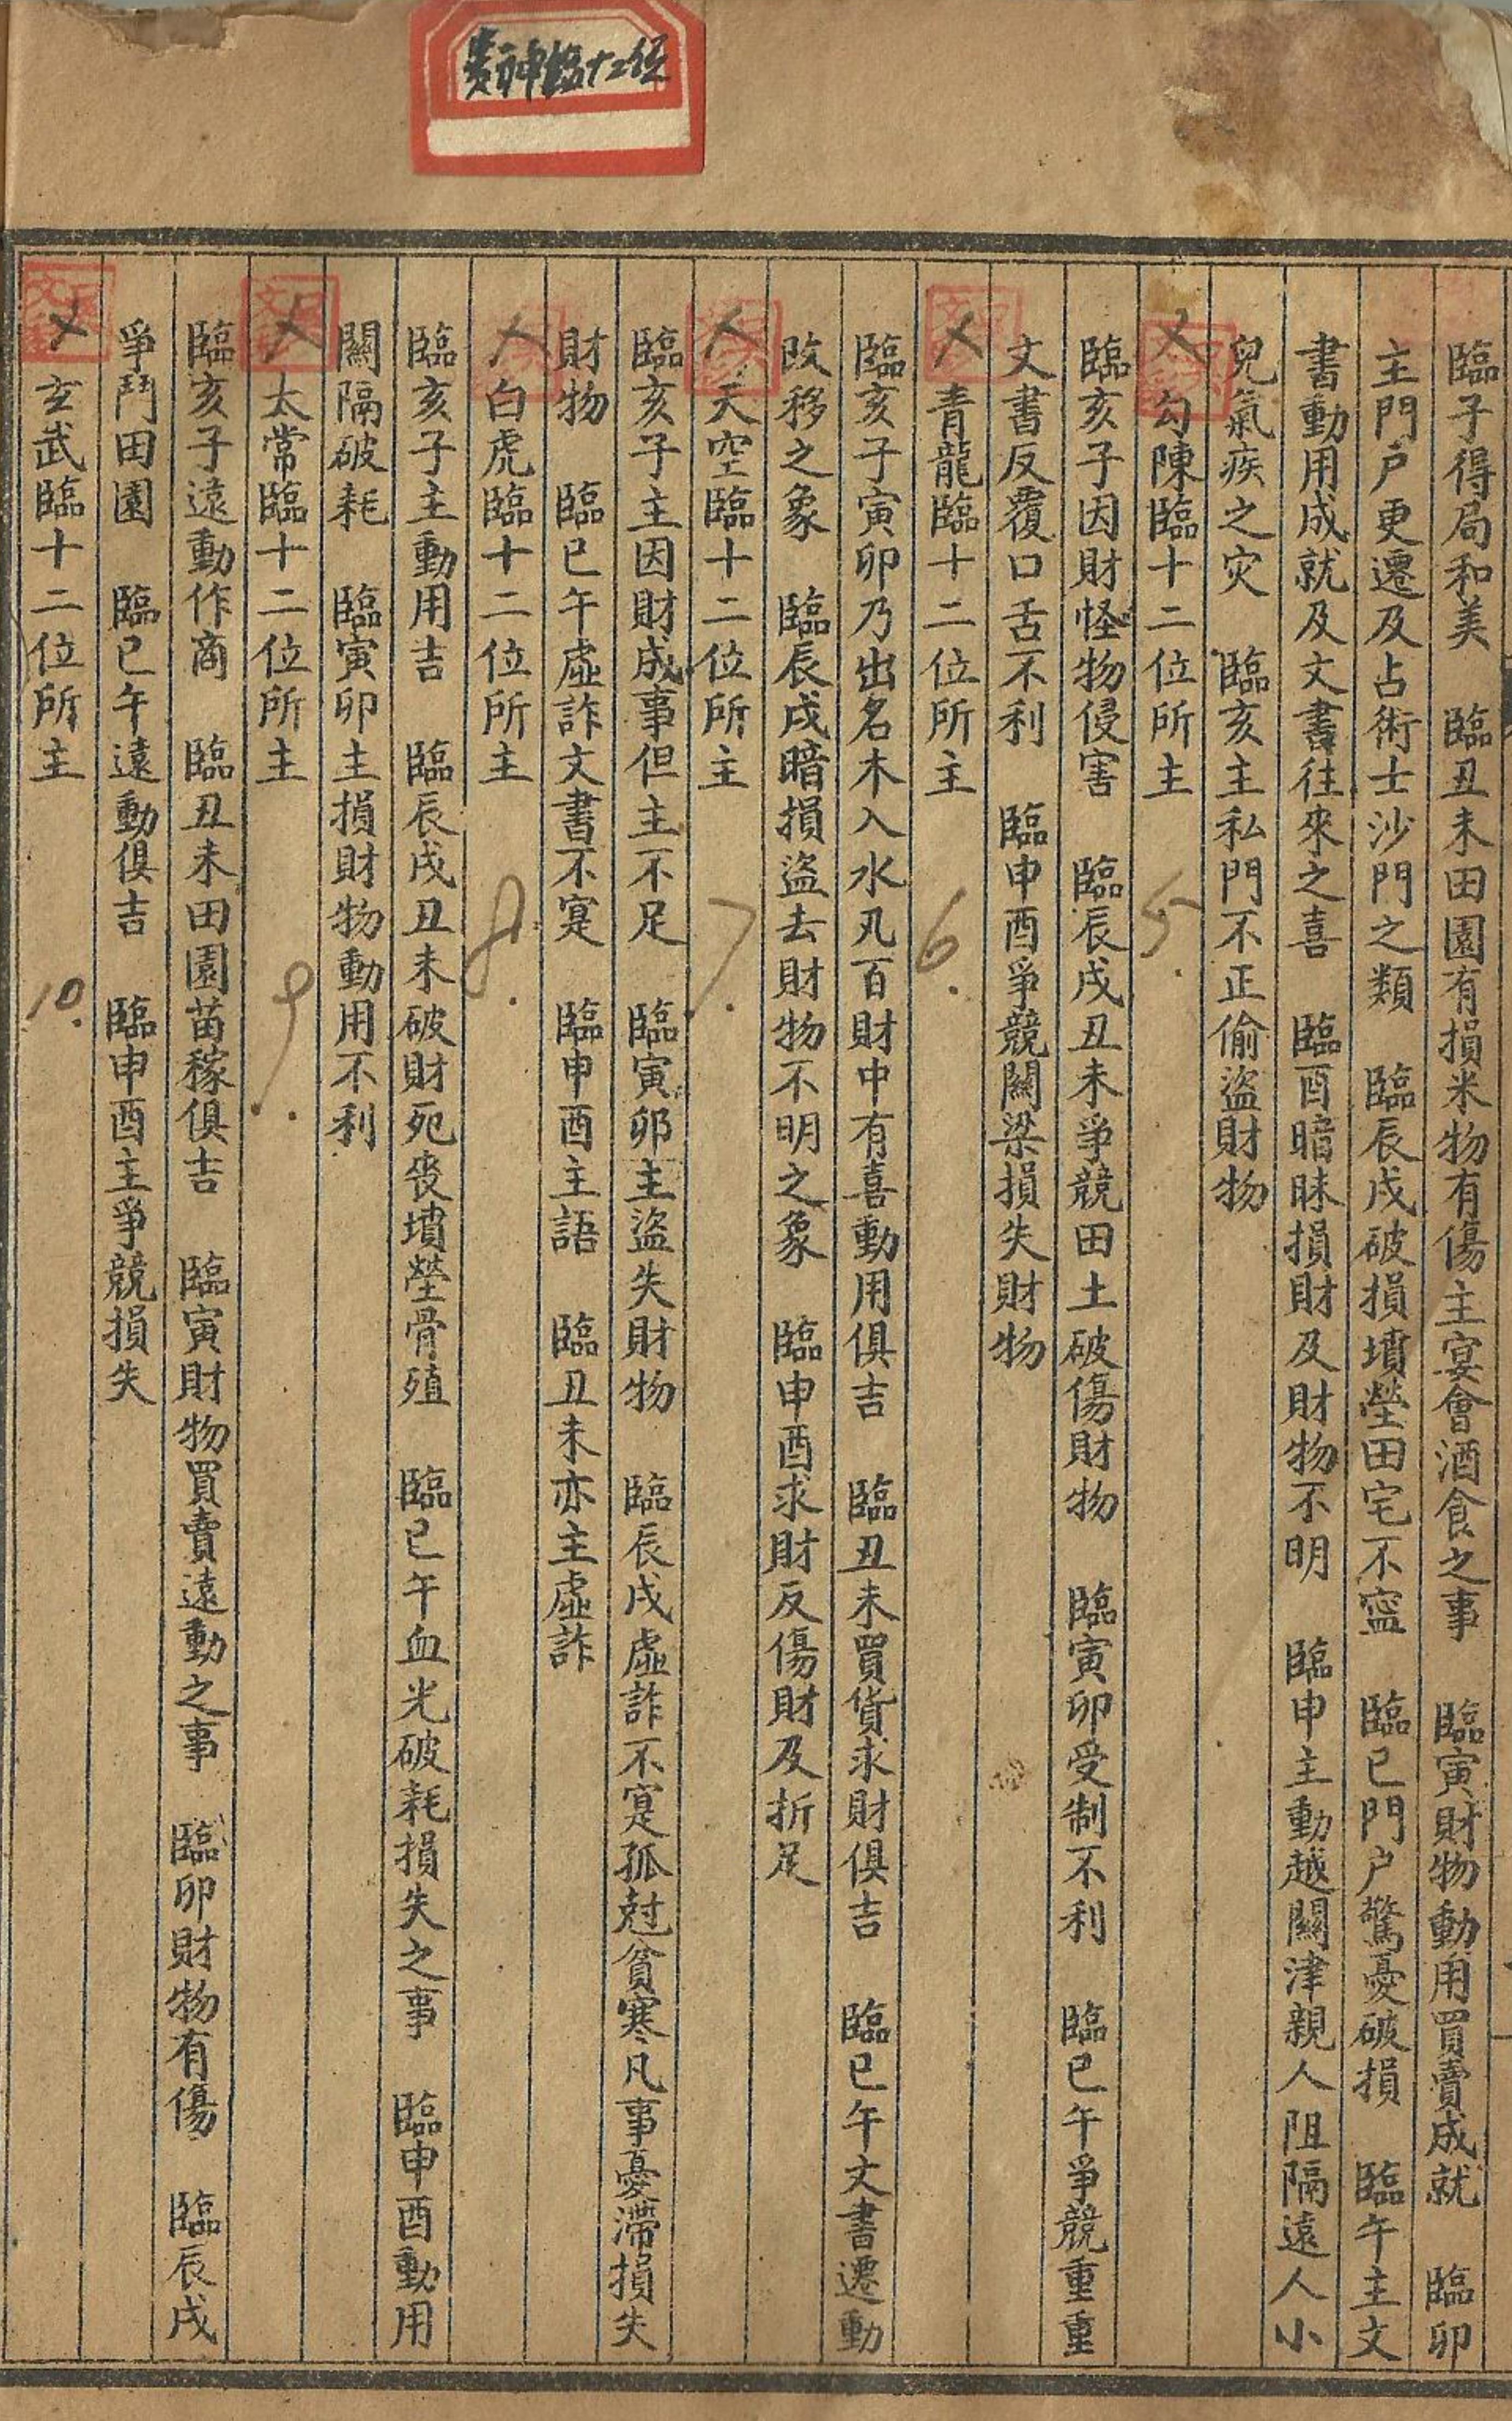 貴神臨十二位
臨子得局和美　臨丑未田園有損米物有傷主宴會酒食之事　臨寅財物動用買賣成就　臨卯
主門戶更遷及占術士沙門之類　臨辰戌破損墳塋田宅不寍　臨巳門戶驚憂破損　臨午主文
書動用成就及文書往來之喜　臨酉暗昧損財及財物不明　臨申主動越關津親人阻隔遠人小
兒氣疾之灾　臨亥主私門不正偷盜財物
勾陳臨十二位所主　5.
臨亥子因財怪物侵害　臨辰戌丑未爭競田土破傷財物　臨寅卯受制不利　臨巳午爭競重重
文書反覆口舌不利　臨申酉爭競關梁損失財物
青龍臨十二位所主　6.
臨亥子寅卯乃出名木入水凡百財中有喜動用俱吉　臨丑未買貨求財俱吉　臨巳午文書遷動
改移之象　臨辰戌暗損盜去財物不明之象　臨申酉求財反傷財及折足
天空臨十二位所主　7.
臨亥子主因財成事但主不足　臨寅卯主盜失財物　臨辰戌虛詐不寔孤尅貧寒凡事憂滯損失
財物　臨巳午虛詐文書不寔　臨申酉主語　臨丑未亦主虛詐
白虎臨十二位所主　8.
臨亥子主動用吉　臨辰戌丑未破財死喪墳塋骨殖　臨巳午血光破耗損失之事　臨申酉動用
關隔破耗　臨寅卯主損財物動用不利
太常臨十二位所主　9.
臨亥子遠動作商　臨丑未田園苗稼俱吉　臨寅財物買賣遠動之事　臨卯財物有傷　臨辰戌
爭鬥田園　臨巳午遠動俱吉　臨申酉主爭競損失
玄武臨十二位所主　10.